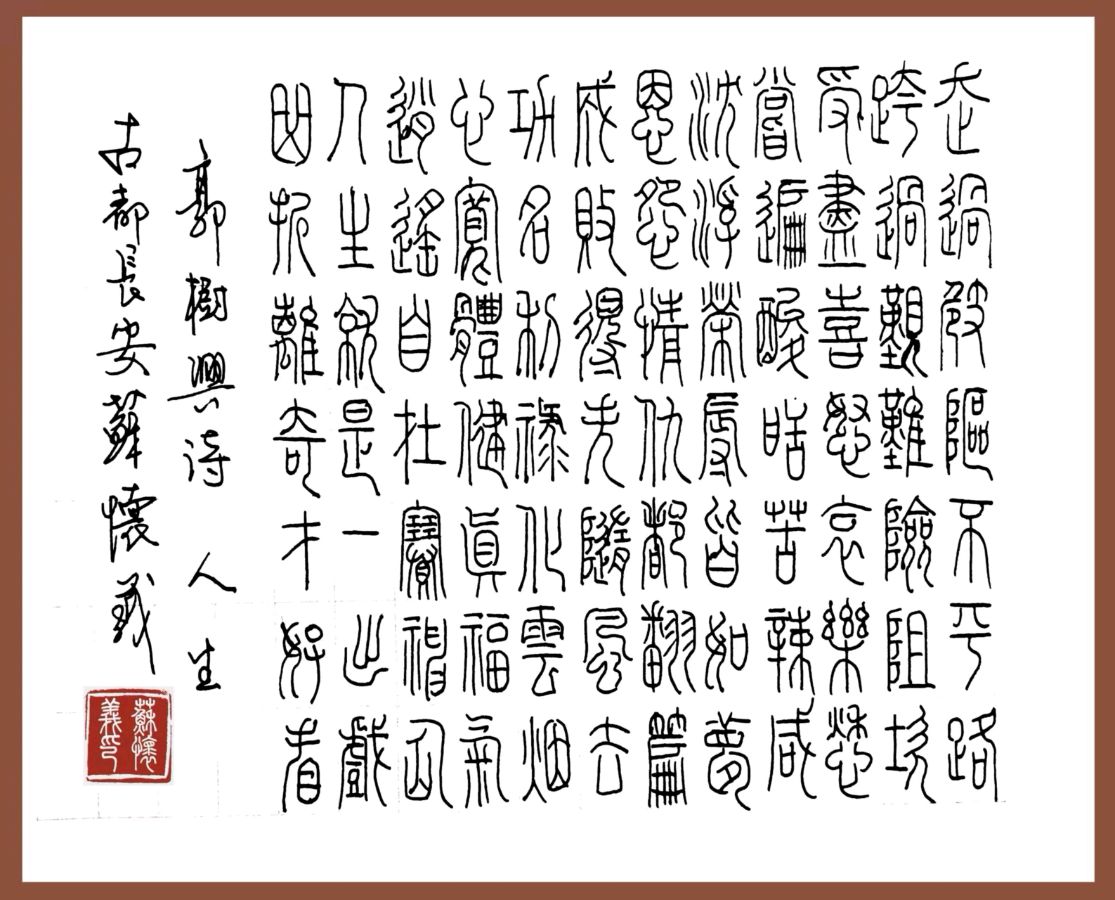 走過崎嶇不平路
跨過艱難險阻坎
受盡喜怒哀樂愁
嘗遍酸甜苦辣咸
沈浮榮辱皆如夢
恩怨情仇都翻篇
成敗得失隨風去
功名利祿化雲烟
心寬體健真福氣
逍遙自在賽神仙
人生就是一出戲
曲折離奇才好看
郭樹興詩 人生
古都長安蘇懷義
蘇懷
義印